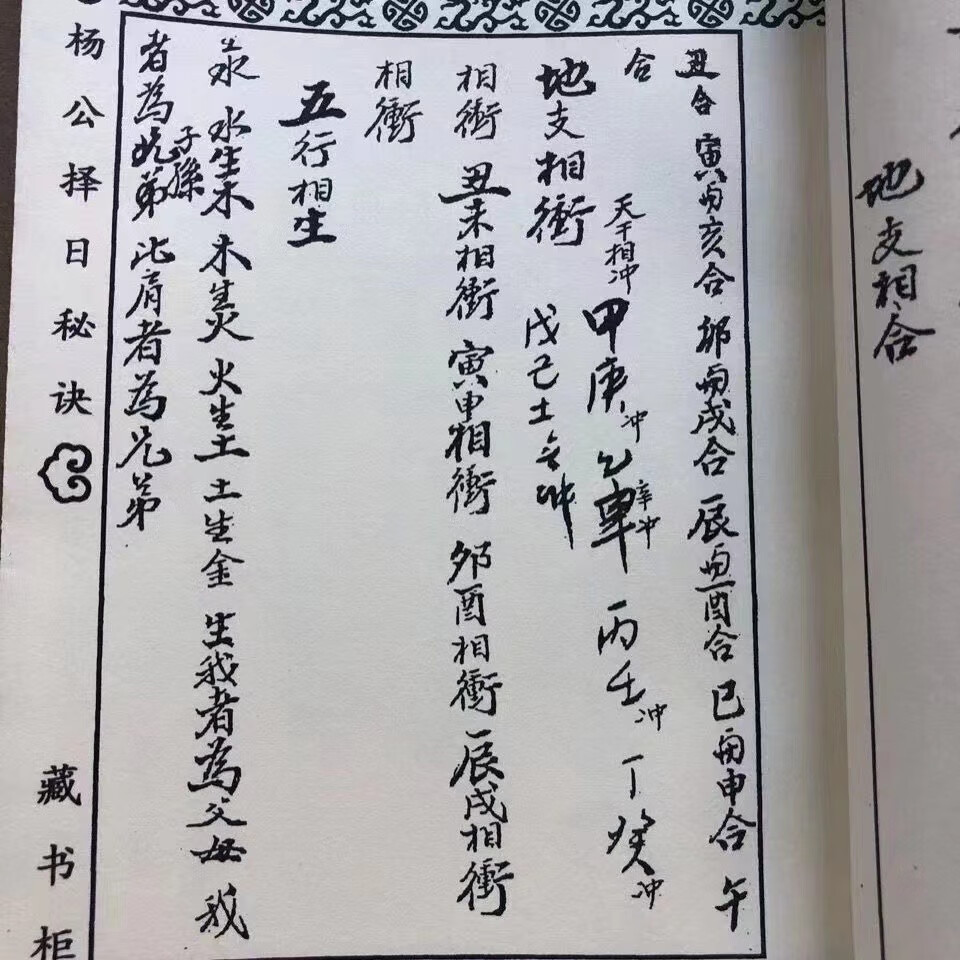 地支相合
丑合 寅与亥合 夘与戌合 辰与酉合 巳与申合 午
合
天干相冲 甲庚冲 乙辛冲 丙壬冲 丁癸冲
地支相衝 戊己土无冲
相衝 丑未相衝 寅申相衝 夘酉相衝 辰戌相衝
相衝
五行相生
生水 水生木 木生火 火生土 土生金 生我者為父母 我
者為兄弟 比肩者為兄弟
子孫
杨公择日秘诀
藏书柜